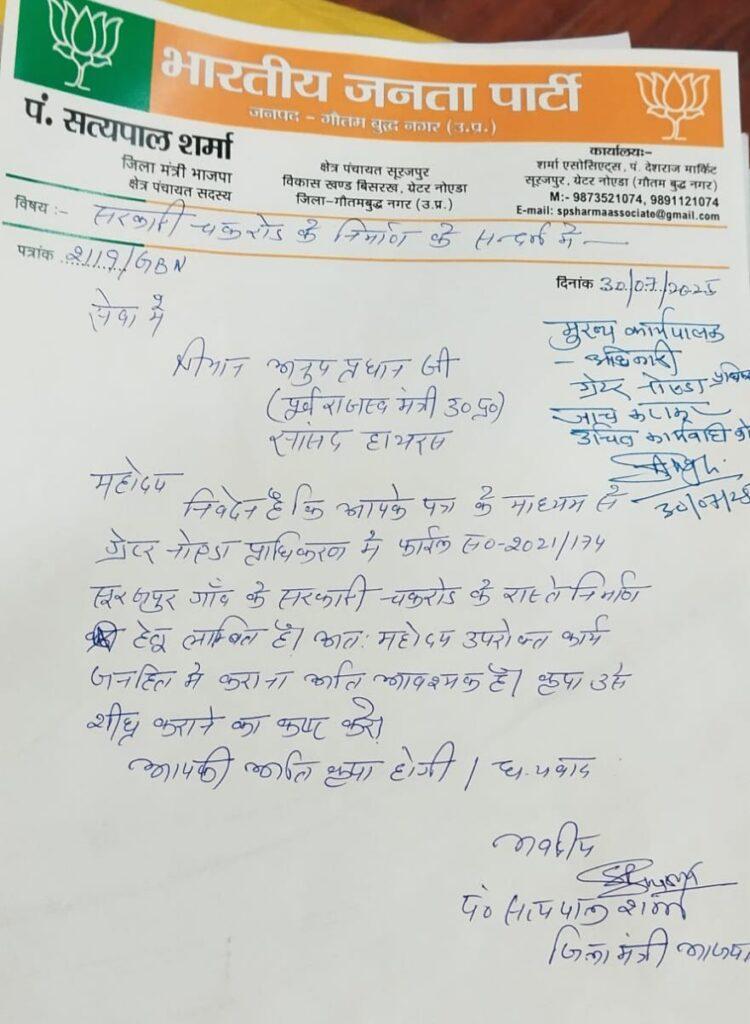 भारतीय जनता पार्टी
जनपद - गौतम बुद्ध नगर (उ.प्र.)
पं. सत्यपाल शर्मा
जिला मंत्री भाजपा
क्षेत्र पंचायत सदस्य
क्षेत्र पंचायत सूरजपुर
विकास खण्ड बिसरख, ग्रेटर नोएडा
जिला-गौतमबुद्ध नगर (उ.प्र.)
कार्यालयः-
शर्मा एसोसिएट्स, पं. देशराज मार्किट
सूरजपुर, ग्रेटर नोएडा (गौतम बुद्ध नगर)
M:- 9873521074, 9891121074
E-mail: spsharmaassociate@gmail.com
विषय :- सरकारी चकरोड के निर्माण के सन्दर्भ में —
पत्रांक 2119/GBN
दिनांक 30/07/2025
सेवा में
श्रीमान अनुप प्रधान जी
(पूर्व राजस्व मंत्री उ०प्र०)
सांसद हाथरस
मुख्य कार्यपालक
- अधिकारी
ग्रेटर नोएडा
जांच कराकर
उचित कार्यवाही
30/07/25
महोदय
निवेदन है कि आपके पत्र के माध्यम से
ग्रेटर नोएडा प्राधिकरण में फाईल स०-2021/174
सूरजपुर गाँव के सरकारी चकरोड के रास्ते निर्माण
हेतु लम्बित है। अतः महोदय उपरोक्त कार्य
जनहित में कराना अति आवश्यक है। कृपा उसे
शीघ्र कराने का कष्ट करें।
आपकी अति कृपा होगी। धन्यवाद
भवदीय
पं० सत्यपाल शर्मा
जिला मंत्री भाजपा